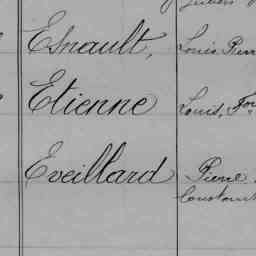 Esnault, Louis Pierr
Etienne Louis, Fon
Eveillard Pierre
Constant